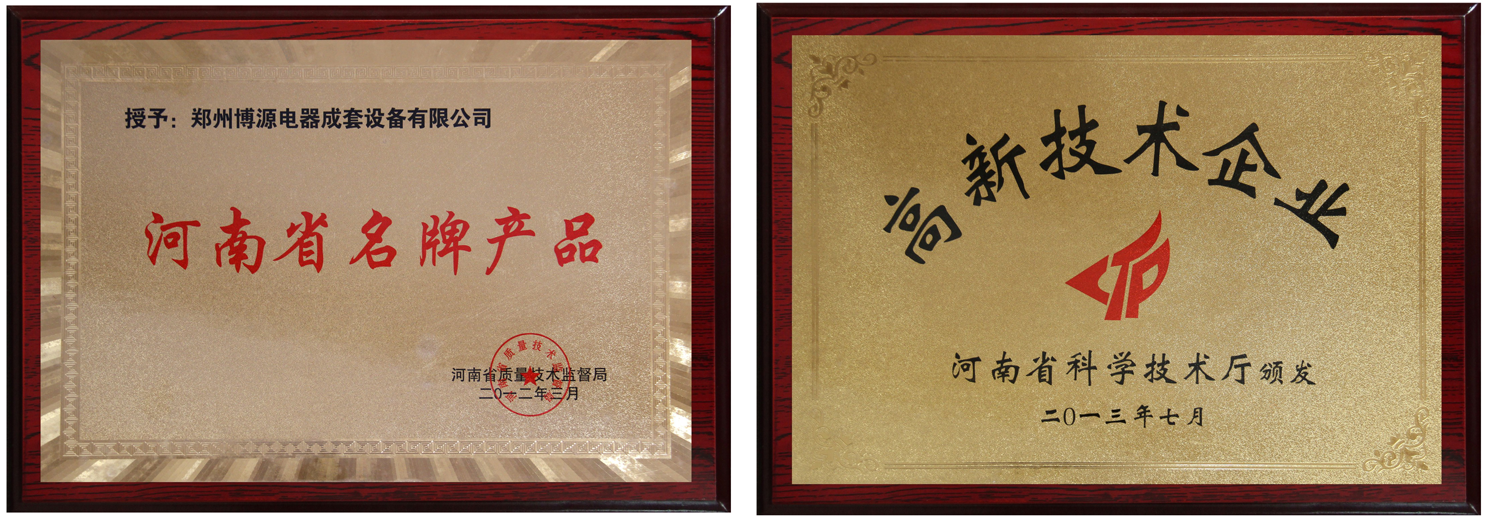 授予：郑州博源电器成套设备有限公司
河南省名牌产品
河南省质量技术监督局
二0一二年三月
高新技术企业
河南省科学技术厅颁发
二0一三年七月